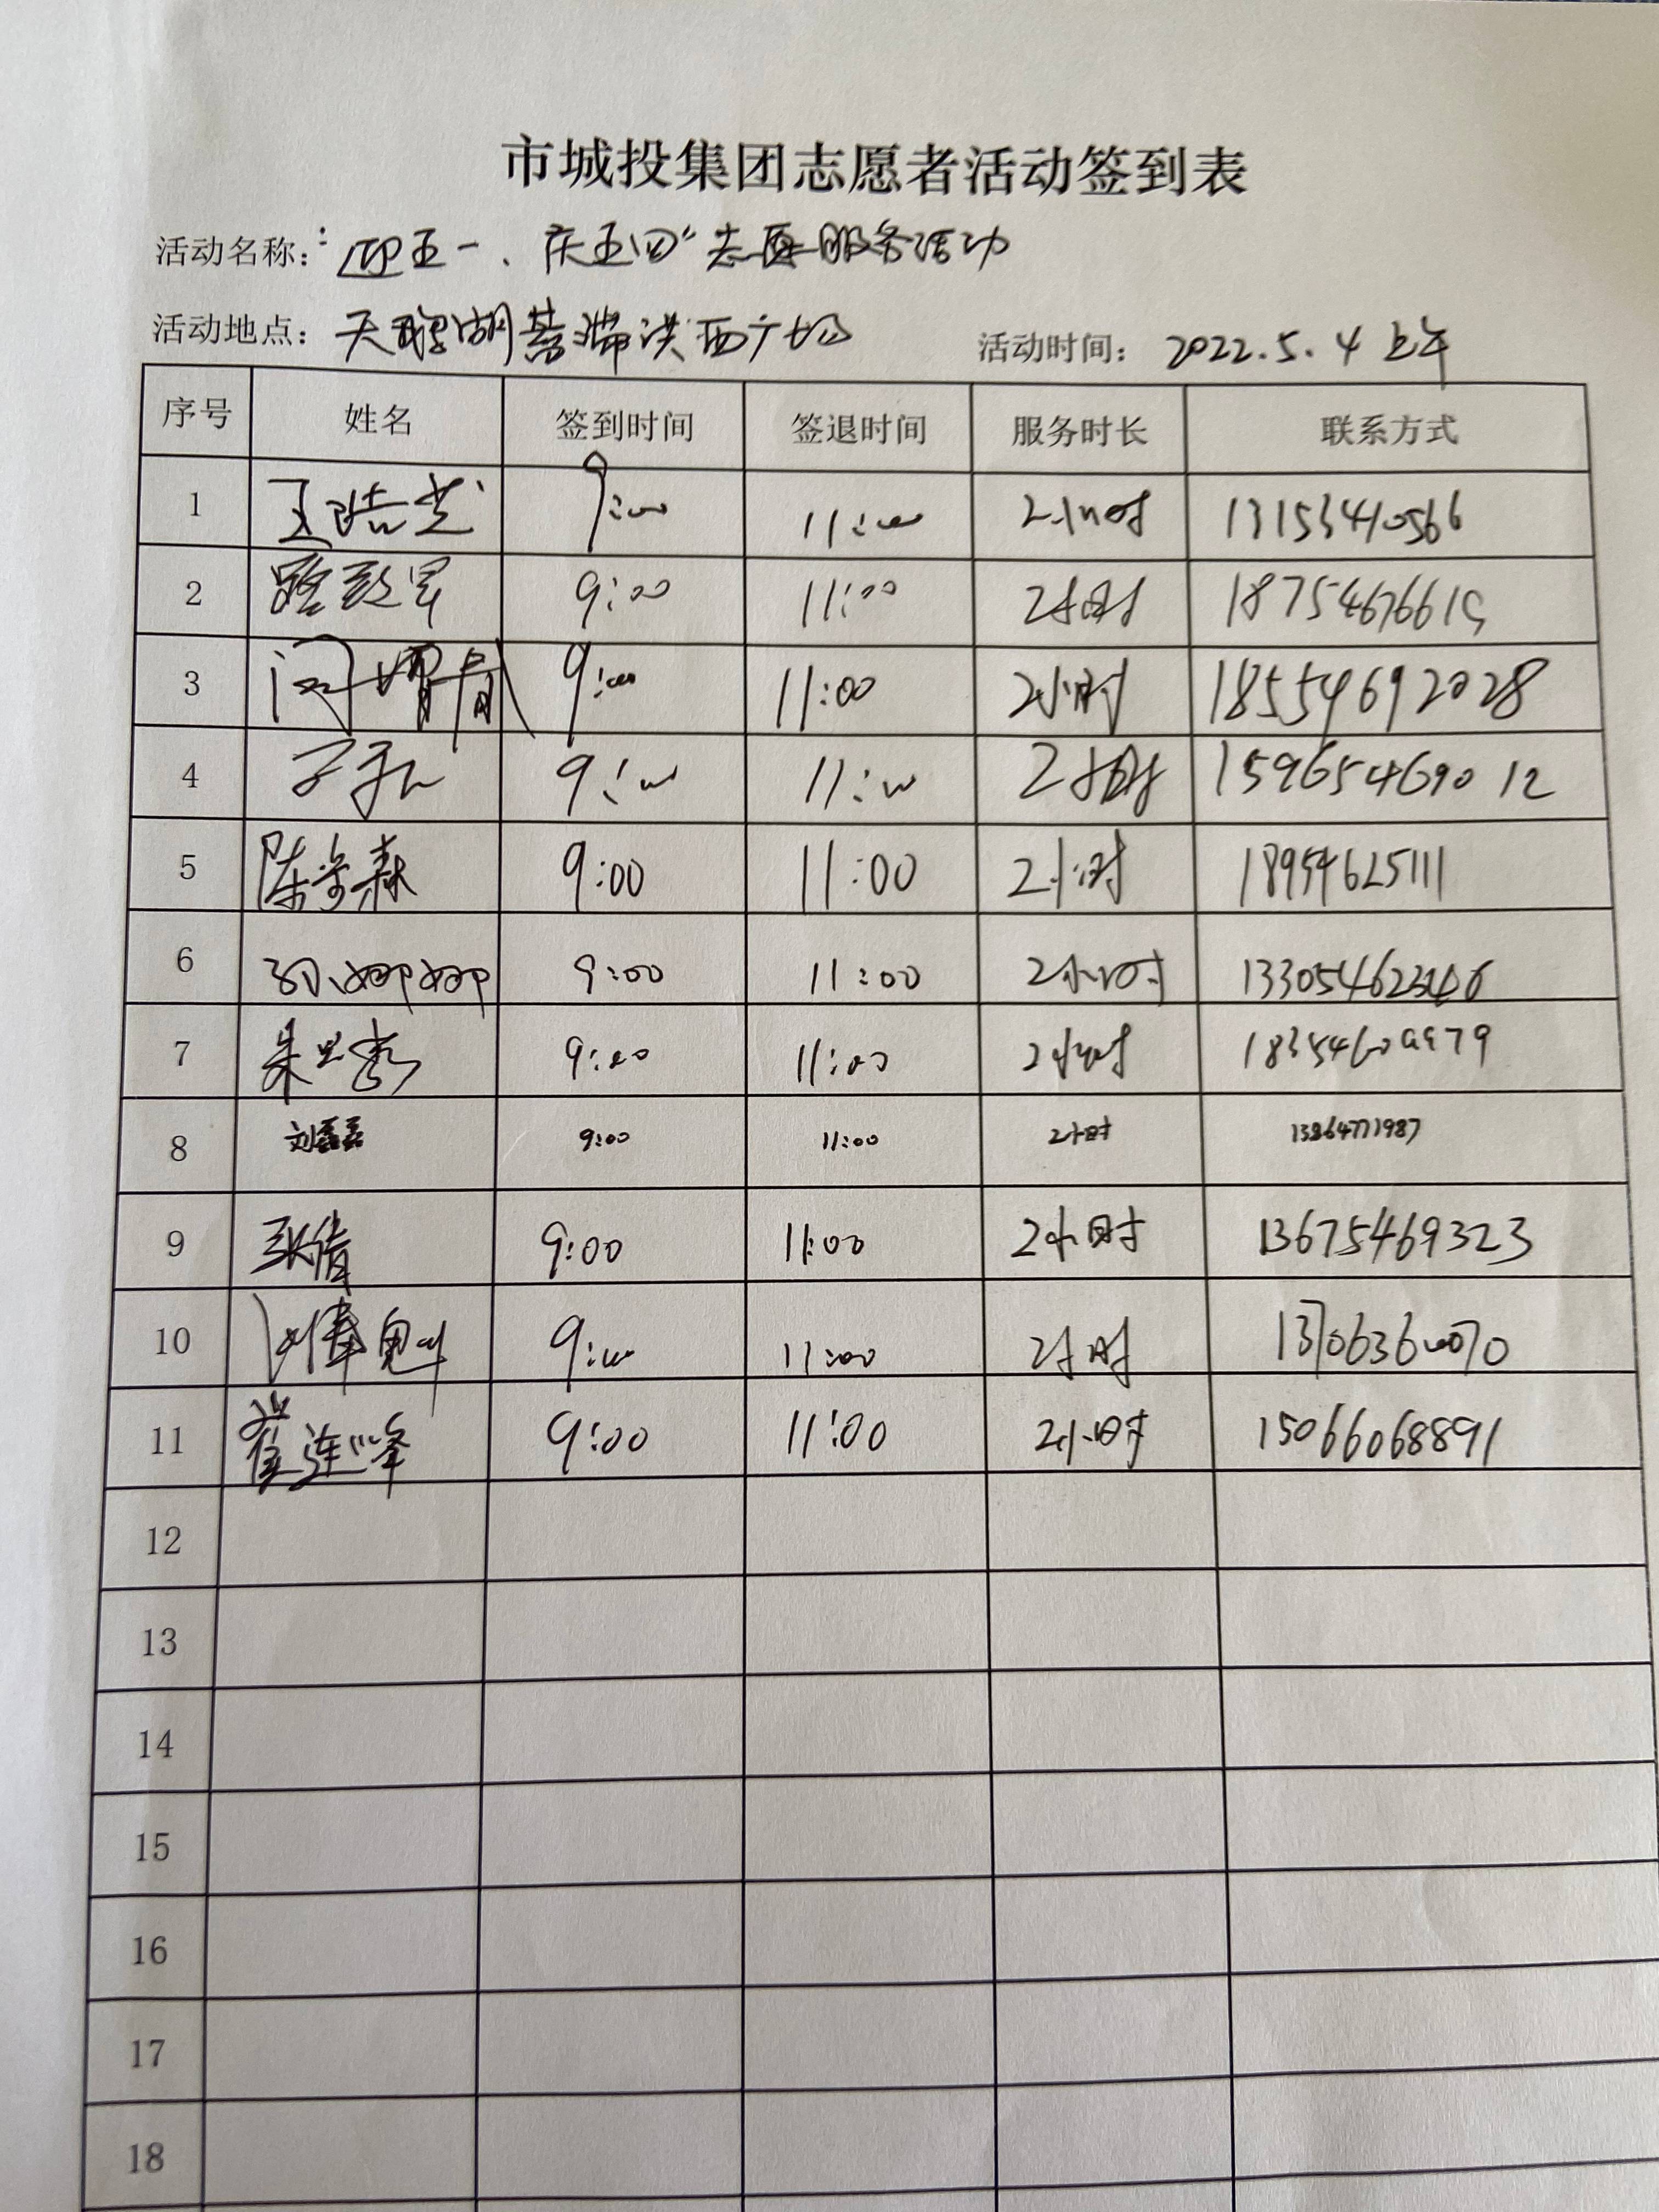 市城投集团志愿者活动签到表
活动名称："迎五一、庆五四"志愿服务活动
活动地点：天鹅湖蓄滞洪西广场 活动时间：2022.5.4 上午
序号 姓名 签到时间 签退时间 服务时长 联系方式
1 9:00 11:00 2小时 13153410566
2 9:00 11:00 2小时 18754676615
3 9:00 11:00 2小时 18554692028
4 9:00 11:00 2小时 15965469012
5 陈岩森 9:00 11:00 2小时 18954625111
6 孙娜娜 9:00 11:00 2小时
7 9:00 11:00 2小时
8 刘磊磊 9:00 11:00 2小时 13864771987
9 张倩 9:00 11:00 2小时 13675469323
10 9:00 11:00 2小时 13706360070
11 崔连峰 9:00 11:00 2小时 15066068891
12
13
14
15
16
17
18